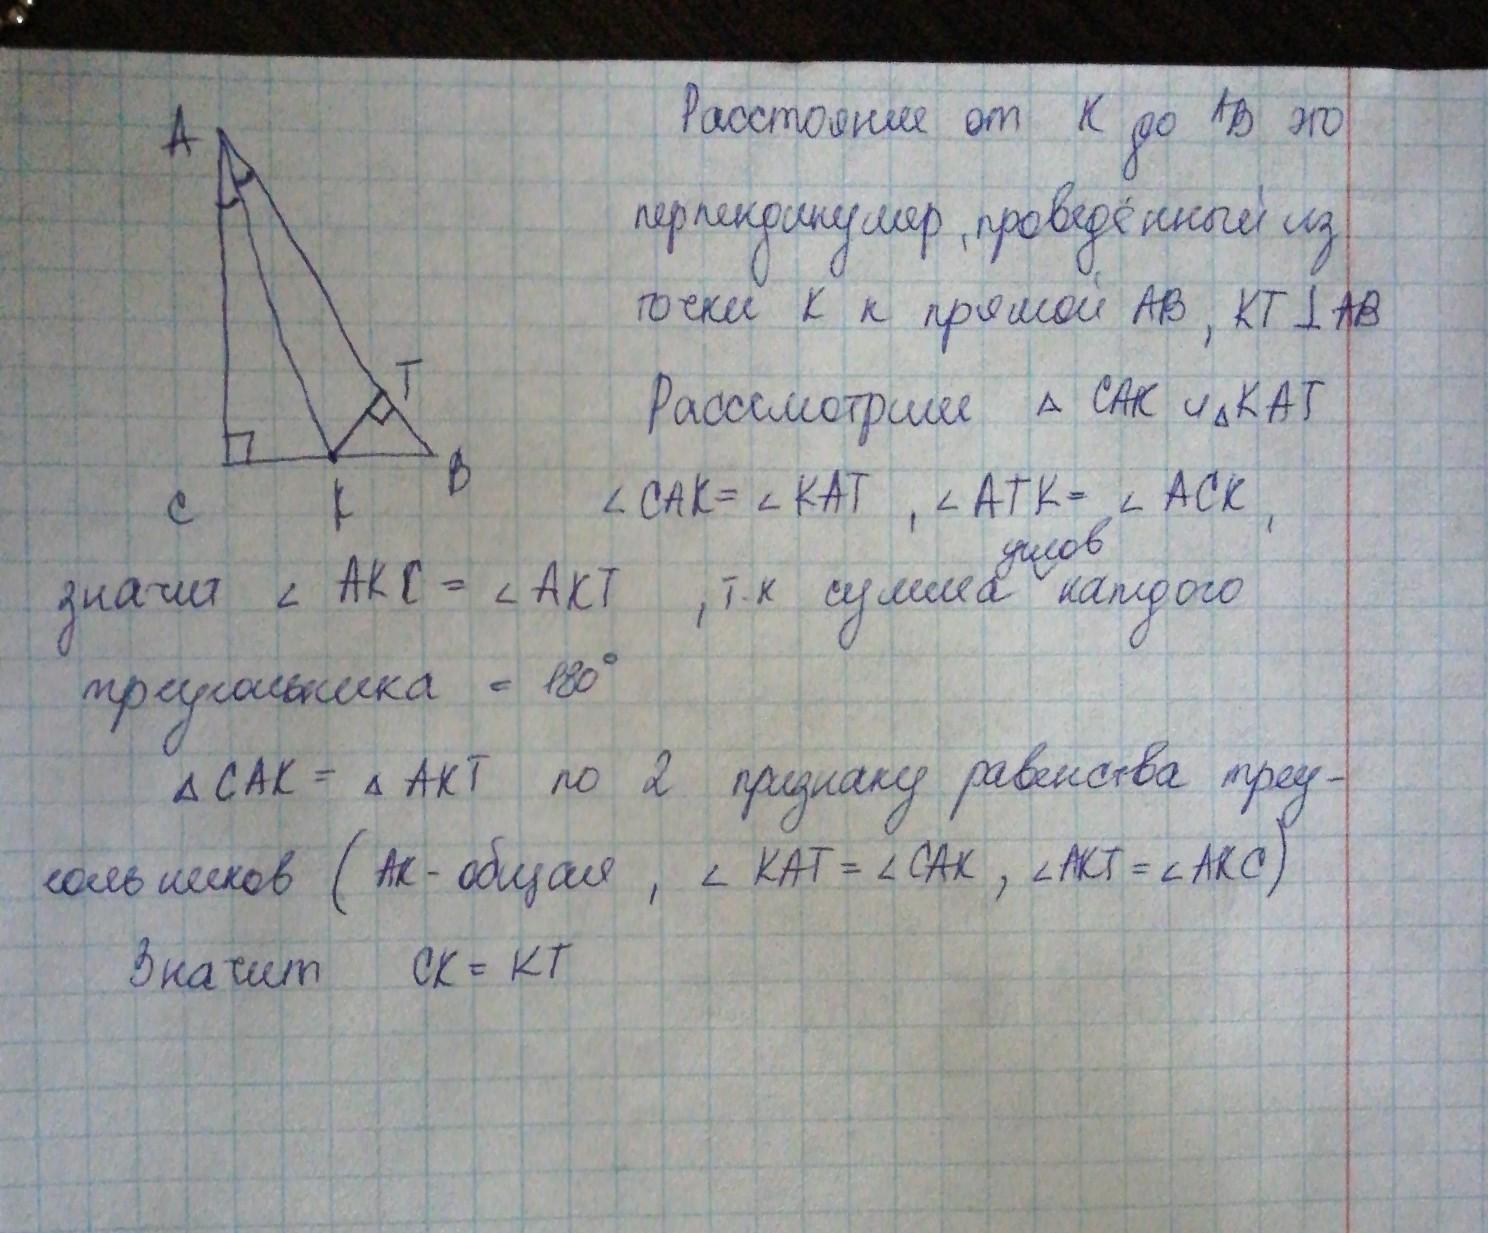 A
T
B
C
K
Расстояние от K до AB это
перпендикуляр, проведённый из
точки K к прямой AB, KT ⊥ AB
Рассмотрим △ CAK и △ KAT
∠ CAK = ∠ KAT , ∠ ATK = ∠ ACK ,
углов
значит ∠ AKC = ∠ AKT , т.к сумма каждого
треугольника = 180°
△ CAK = △ AKT по 2 признаку равенства треу-
гольников ( AK - общая , ∠ KAT = ∠ CAK , ∠ AKT = ∠ AKC )
Значит CK = KT